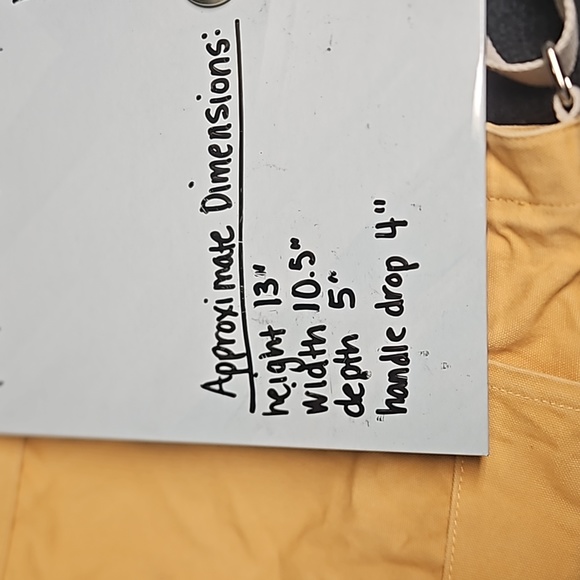 Approximate Dimensions:
height 13"
width 10.5"
depth 5"
handle drop 4"